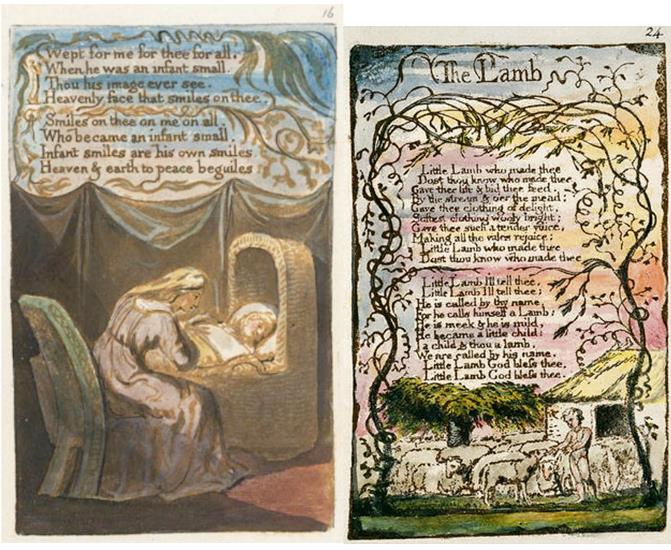 16
Wept for me for thee for all.
When he was an infant small.
Thou his image ever see.
Heavenly face that smiles on thee.
Smiles on thee on me on all.
Who became an infant small.
Infant smiles are his own smiles
Heaven & earth to peace beguiles
24
The Lamb
Little Lamb who made thee
Dost thou know who made thee
Gave thee life & bid thee feed.
By the stream & oer the mead;
Gave thee clothing of delight,
Softest clothing wooly bright;
Gave thee such a tender voice,
Making all the vales rejoice;
Little Lamb who made thee
Dost thou know who made thee
Little Lamb I'll tell thee,
Little Lamb I'll tell thee;
He is called by thy name,
For he calls himself a Lamb:
He is meek & he is mild,
He became a little child:
I a child & thou a lamb,
We are called by his name.
Little Lamb God bless thee.
Little Lamb God bless thee.